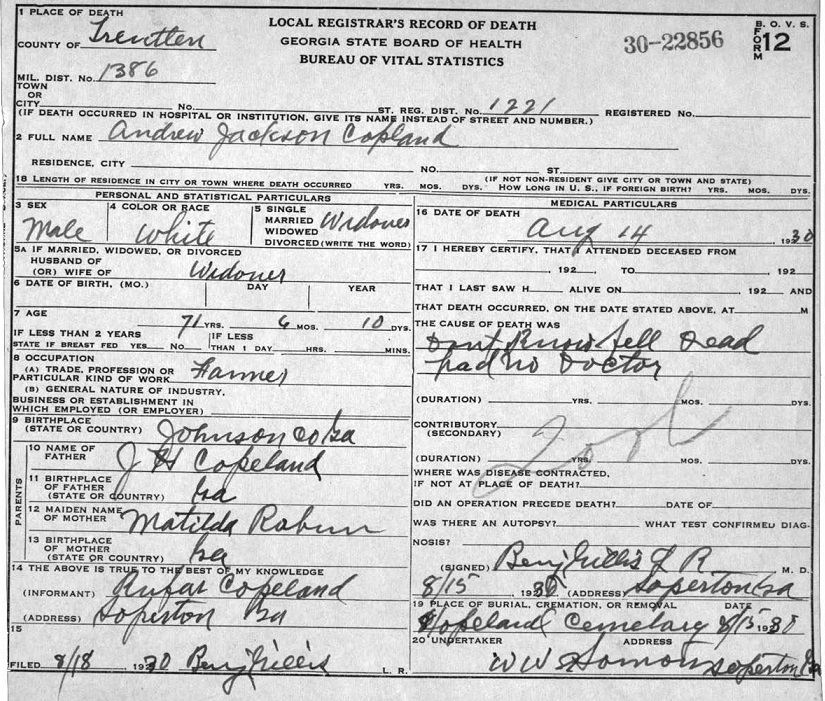 LOCAL REGISTRAR'S RECORD OF DEATH
GEORGIA STATE BOARD OF HEALTH
BUREAU OF VITAL STATISTICS
30-22856
B. O. V. S.
FORM 12
1 PLACE OF DEATH
COUNTY OF Treutlen
MIL. DIST. No. 1386
TOWN
OR
CITY No. ST. REG. DIST. No. 1221 REGISTERED No.
(IF DEATH OCCURRED IN HOSPITAL OR INSTITUTION, GIVE ITS NAME INSTEAD OF STREET AND NUMBER.)
2 FULL NAME Andrew Jackson Copland
RESIDENCE, CITY NO. ST.
(IF NOT NON-RESIDENT GIVE CITY OR TOWN AND STATE)
18 LENGTH OF RESIDENCE IN CITY OR TOWN WHERE DEATH OCCURRED YRS. MOS. DYS. HOW LONG IN U. S., IF FOREIGN BIRTH? YRS. MOS. DYS.
PERSONAL AND STATISTICAL PARTICULARS
3 SEX
Male
4 COLOR OR RACE
White
5 SINGLE
MARRIED Widower
WIDOWED
DIVORCED (WRITE THE WORD)
5A IF MARRIED, WIDOWED, OR DIVORCED
HUSBAND OF
(OR) WIFE OF Widoner
6 DATE OF BIRTH, (MO.) DAY YEAR
7 AGE
71 YRS. 6 MOS. 10 DYS.
IF LESS THAN 2 YEARS
STATE IF BREAST FED YES No
IF LESS
THAN 1 DAY HRS. MINS.
8 OCCUPATION
(A) TRADE, PROFESSION OR
PARTICULAR KIND OF WORK Farmer
(B) GENERAL NATURE OF INDUSTRY,
BUSINESS OR ESTABLISHMENT IN
WHICH EMPLOYED (OR EMPLOYER)
9 BIRTHPLACE
(STATE OR COUNTRY) Johnson Co Ga
PARENTS
10 NAME OF
FATHER J H Copeland
11 BIRTHPLACE
OF FATHER
(STATE OR COUNTRY) Ga
12 MAIDEN NAME
OF MOTHER Matilda
13 BIRTHPLACE
OF MOTHER
(STATE OR COUNTRY) Ga
14 THE ABOVE IS TRUE TO THE BEST OF MY KNOWLEDGE
(INFORMANT) Rufas Copeland
(ADDRESS) Soperton Ga
15
FILED 8/18 1930 Benj Gillis L. R.
MEDICAL PARTICULARS
16 DATE OF DEATH
Aug 14 1930
17 I HEREBY CERTIFY, THAT I ATTENDED DECEASED FROM
192 TO 192
THAT I LAST SAW H ALIVE ON 192 AND
THAT DEATH OCCURRED, ON THE DATE STATED ABOVE, AT M
THE CAUSE OF DEATH WAS
Dont Know fell Dead
had no Doctor
(DURATION) YRS. MOS. DYS.
CONTRIBUTORY
(SECONDARY)
(DURATION) YRS. MOS. DYS.
WHERE WAS DISEASE CONTRACTED,
IF NOT AT PLACE OF DEATH?
DID AN OPERATION PRECEDE DEATH? DATE OF
WAS THERE AN AUTOPSY? WHAT TEST CONFIRMED DIAG-
NOSIS?
(SIGNED) Benj Gillis L R M. D.
8/15 1930 (ADDRESS) Soperton Ga
19 PLACE OF BURIAL, CREMATION, OR REMOVAL DATE
Copeland Cemetary 8/15 1930
20 UNDERTAKER ADDRESS
W W Soperton Ga